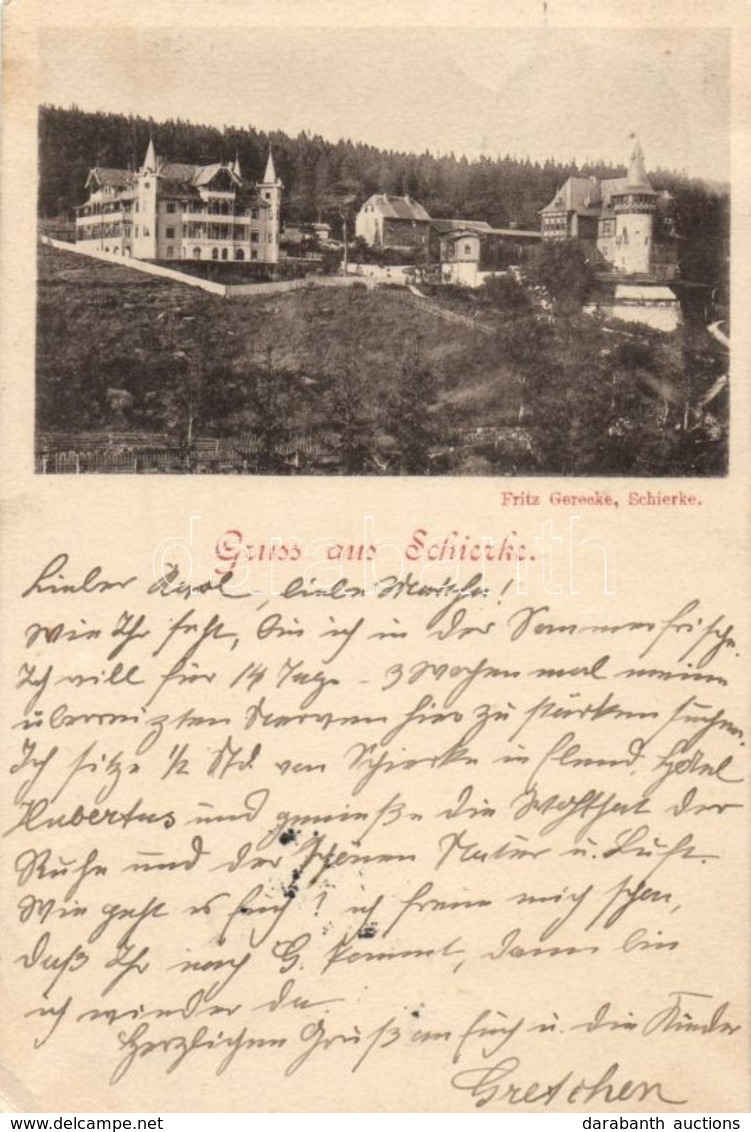 Fritz Gerecke, Schierke.
Gruss aus Schierke.
Lieber Karl, liebe Martha!
Wie Ihr seht, bin ich in der Sommerfrische.
Ich will für 14 Tage - 3 Wochen mal meine
überreizten Nerven hier zu stärken suchen.
Ich sitze 1/2 Std. von Schierke in Elend, Hotel
Hubertus und genieße die Wohlthat der
Ruhe und der schönen Natur u. Luft.
Wie geht es Euch? ich freue mich schon,
daß Ihr nach G. kommt, dann bin
ich wieder da.
Herzlichen Gruß an Euch u. die Kinder
Gretchen
darabanth
darabanth auctions